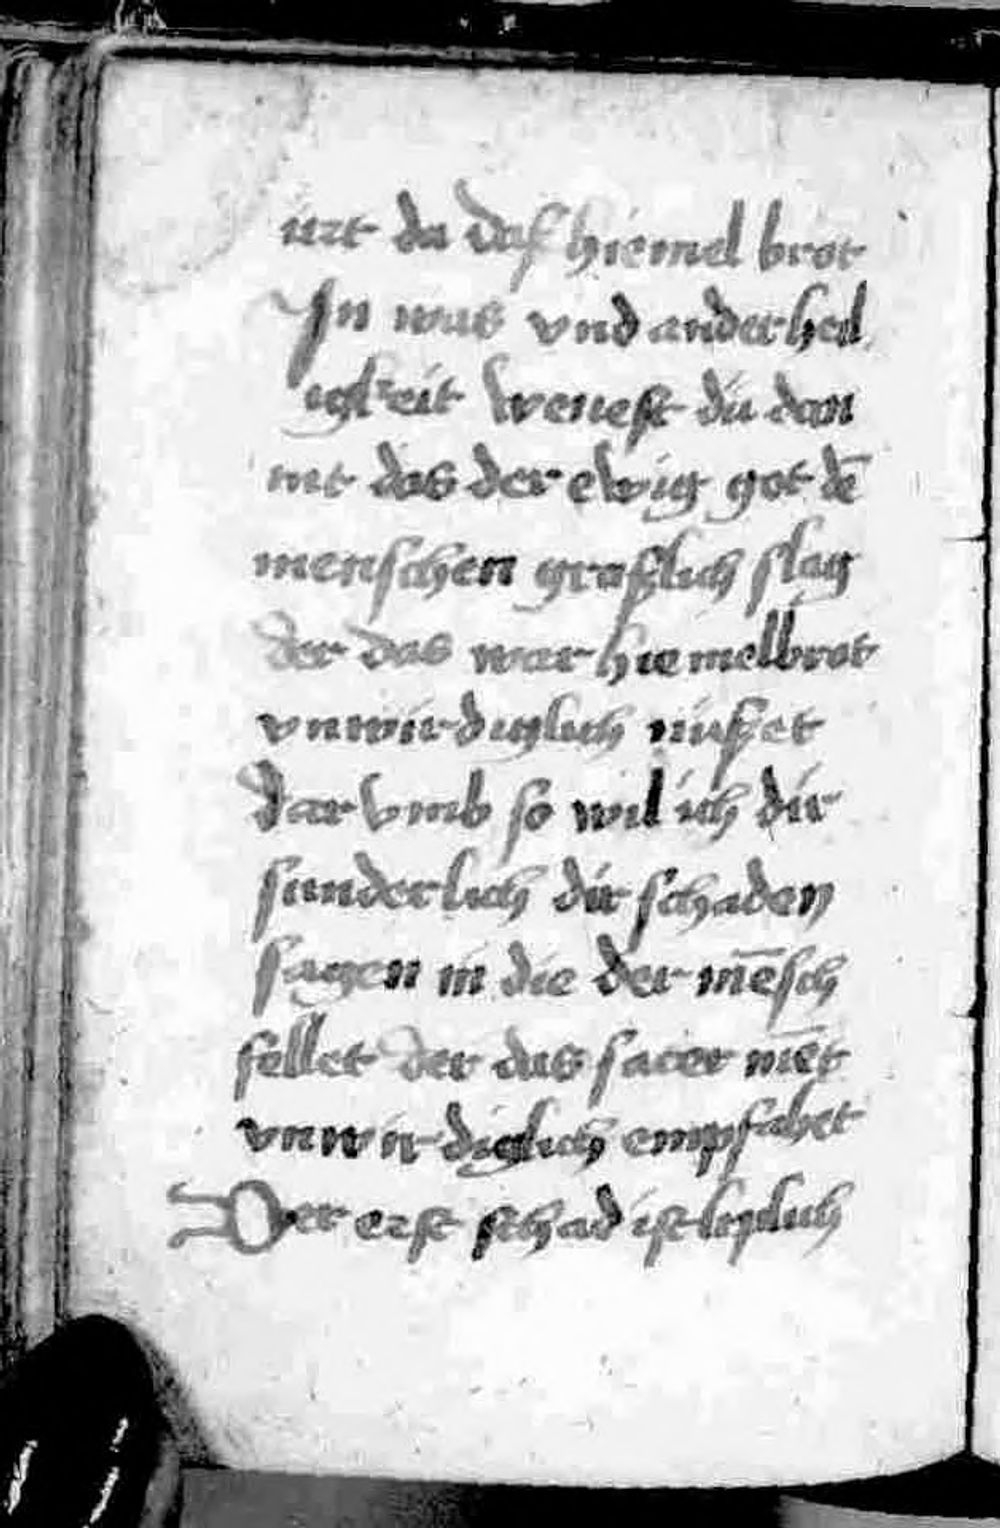 úrt da daß hiemel brot
In was vnd ander heil
igkeit Wenest dú dan
nit das der ewig got dē
menschen gröslich slag
der das war hiemelbrot
vnwirdiglich nüsset
dar Vmb so wil ich dir
sunderlich dir schaden
sagen in die der mēsch
fellet der das sacer mēt
vnwirdiglich empfahet
Der erst schad ist liplich